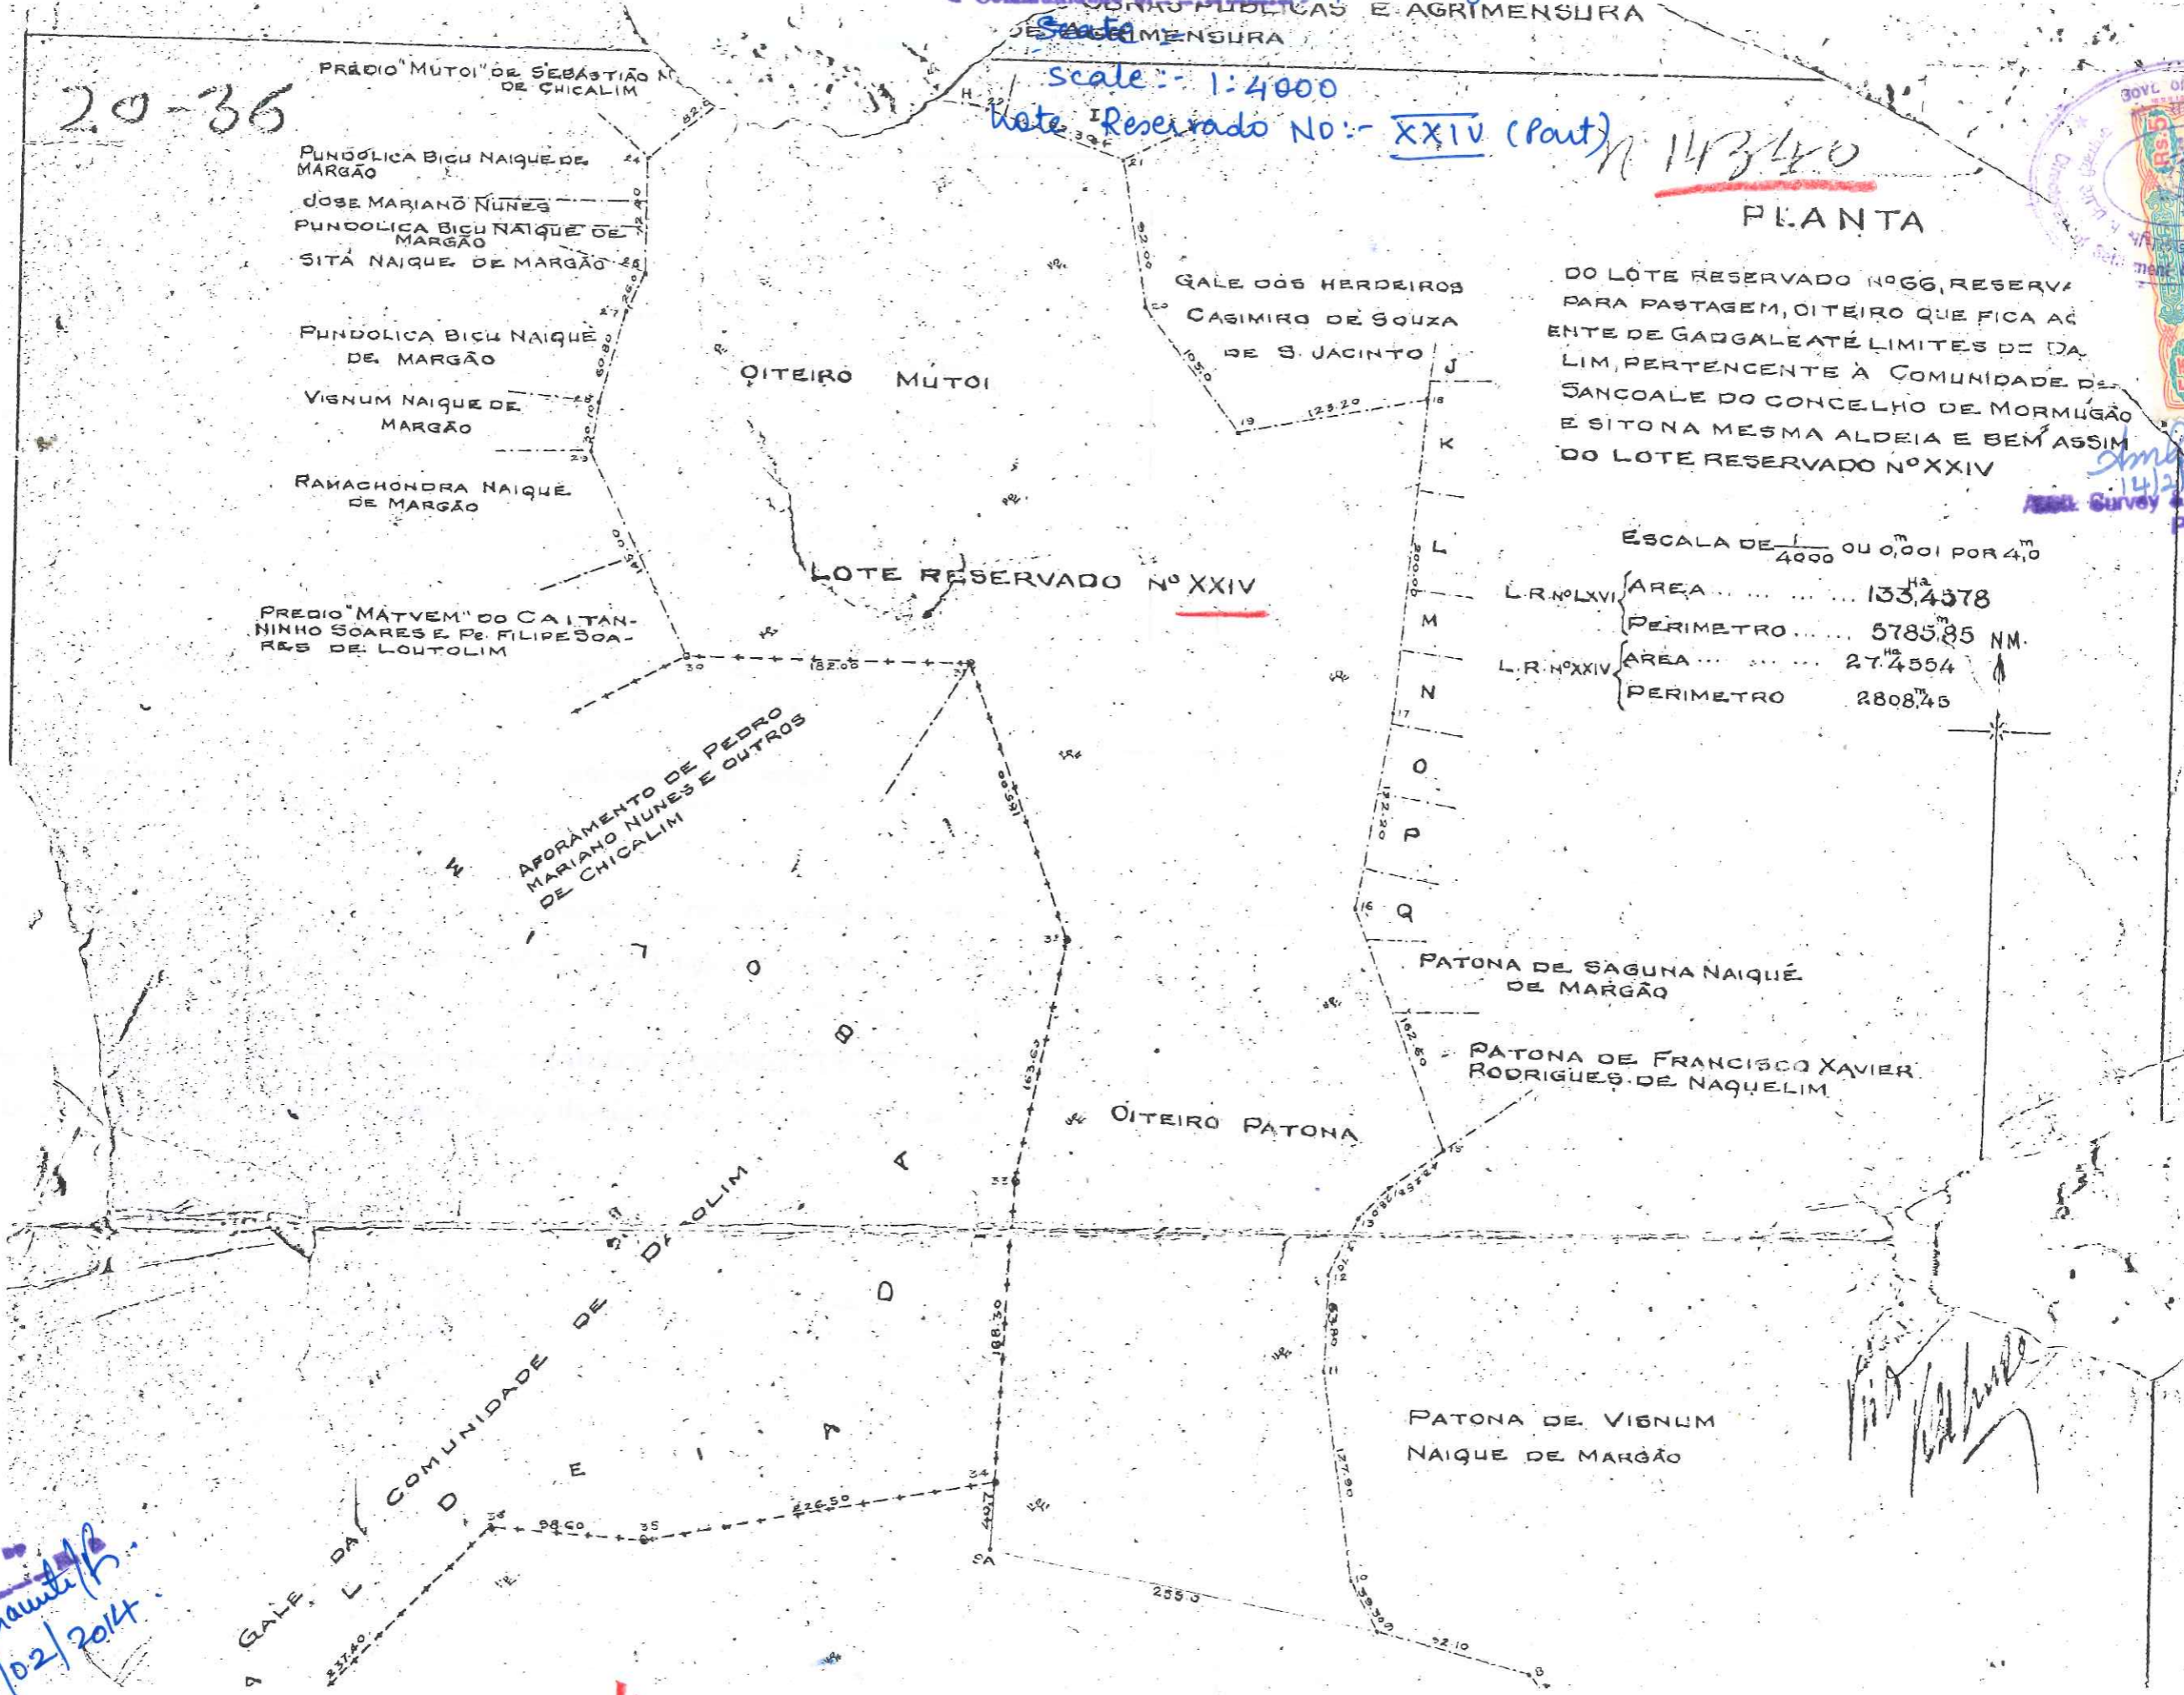 OBRAS PUBLICAS E AGRIMENSURA
DE AGRIMENSURA
Scale :- 1:4000
Lote Reservado No:- XXIV (Part)
20-36
14340
PLANTA
DO LOTE RESERVADO Nº 66, RESERVA
PARA PASTAGEM, OITEIRO QUE FICA
ENTE DE GADGALE ATÉ LIMITES DE DA
LIM, PERTENCENTE À COMUNIDADE DE
SANCOALE DO CONCELHO DE MORMUGÃO
E SITO NA MESMA ALDEIA E BEM ASSIM
DO LOTE RESERVADO Nº XXIV
14/2
Survey
ESCALA DE 1/4000 OU 0,m001 POR 4,m0
L.R. Nº LXVI { AREA ... ... ... 133,Ha4378
PERIMETRO ... ... 5785,m85
L.R. Nº XXIV { AREA ... ... ... 27,Ha4554
PERIMETRO 2808,m45
NM.
PREDIO "MUTOI" DE SEBASTIÃO N
DE CHICALIM
PUNDOLICA BICU NAIQUE DE
MARGÃO
JOSE MARIANO NUNES
PUNDOLICA BICU NAIQUE DE
MARGÃO
SITA NAIQUE DE MARGÃO
PUNDOLICA BICU NAIQUE
DE MARGÃO
VISNUM NAIQUE DE
MARGÃO
RAMACHONDRA NAIQUE
DE MARGÃO
PREDIO "MATVEM" DO CAITAN-
NINHO SOARES E Pe. FILIPE SOA-
RES DE LOUTOLIM
OITEIRO MUTOI
GALE DOS HERDEIROS
CASIMIRO DE SOUZA
DE S. JACINTO
LOTE RESERVADO Nº XXIV
AFORAMENTO DE PEDRO
MARIANO NUNES E OUTROS
DE CHICALIM
H
I
J
K
L
M
N
O
P
Q
PATONA DE SAGUNA NAIQUE
DE MARGÃO
PATONA DE FRANCISCO XAVIER
RODRIGUES DE NAQUELIM
OITEIRO PATONA
PATONA DE VISNUM
NAIQUE DE MARGÃO
GALE DA COMUNIDADE DE DABOLIM
ALDEIA DABO
24
28
29
30
182.00
145.00
60.80
26.0
21
92.00
20
105.0
19
123.20
18
200.0
17
122.20
16
162.50
15
165.00
32
163.65
33
188.30
34
49.7
9A
255.0
226.50
35
98.60
36
237.40
63.80
127.90
10
39.30
9
92.10
8
02/2014